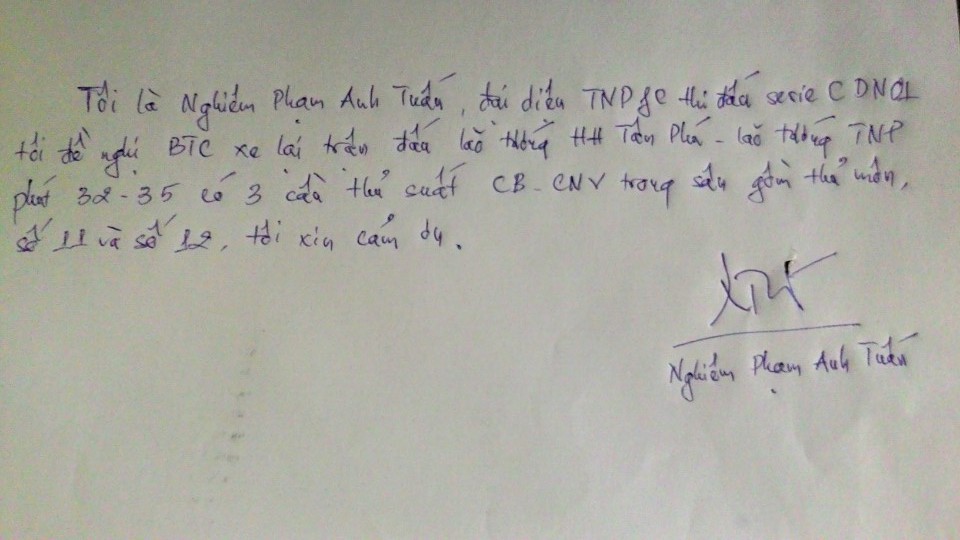 Tôi là Nghiêm Phạm Anh Tuấn, đại diện TNP fc thi đấu serie C DNCL
tôi đề nghị BTC xe lại trận đấu lão tướng HH Tân Phú - lão tướng TNP
phút 32-35 có 3 cầu thủ suất CB-CNV trong sân gồm thủ môn,
số 11 và số 12, tôi xin cám ơn.
Nghiêm Phạm Anh Tuấn